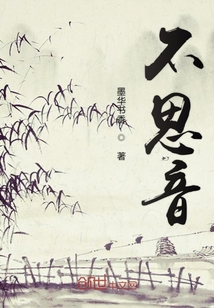 不思音
墨华书香◎著